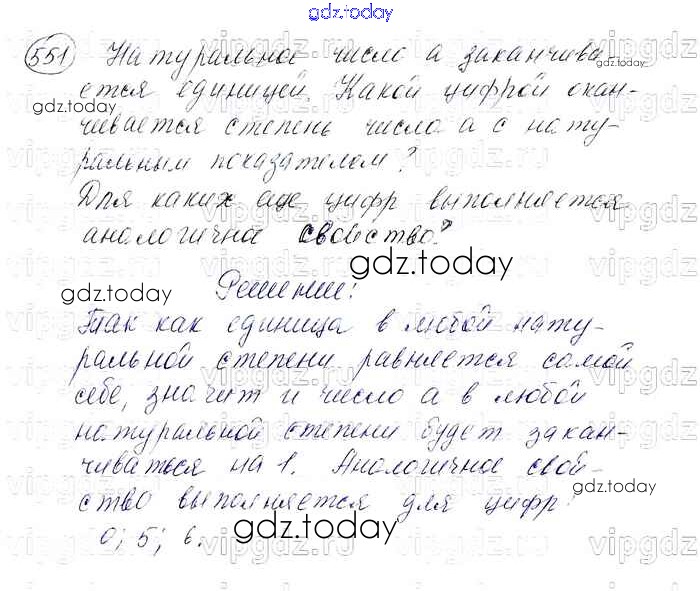 gdz.today
551 Натуральное число а заканчива-
gdz.today
ется единицей. Какой цифрой окан-
gdz.today
чивается степень числа а с нату-
ральным показателем?
Для каких еще цифр выполняется
gdz.today
анологичное свойство?
gdz.today
Решение:
gdz.today
Так как единица в любой нату-
ральной степени равняется самой
себе, значит и число а в любой
натуральной степени будет закан-
чиваться на 1. Анологичное свой-
gdz.today
ство выполняется для цифр:
0; 5; 6.
gdz.today